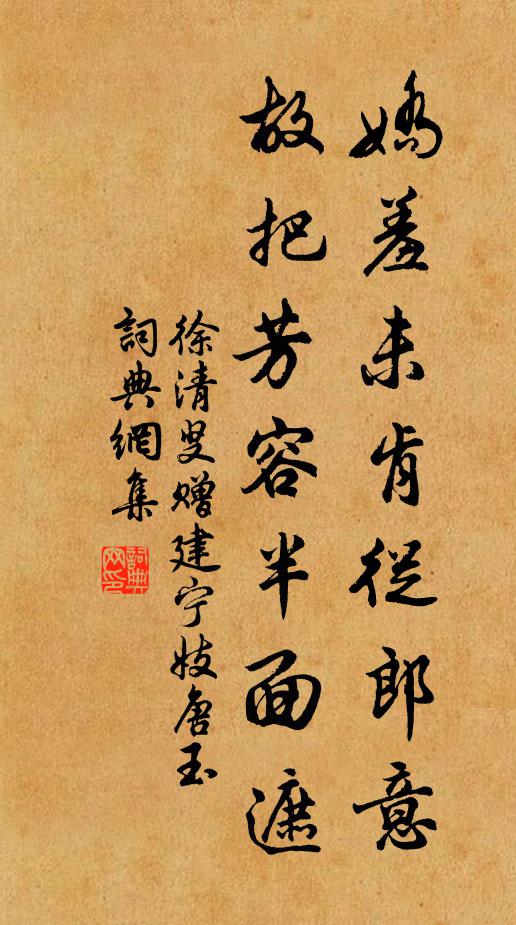 嬌羞未肯從郎意
故把芳容半面遮
徐清叟贈建宁妓唐玉
詞典網集
詞典網印